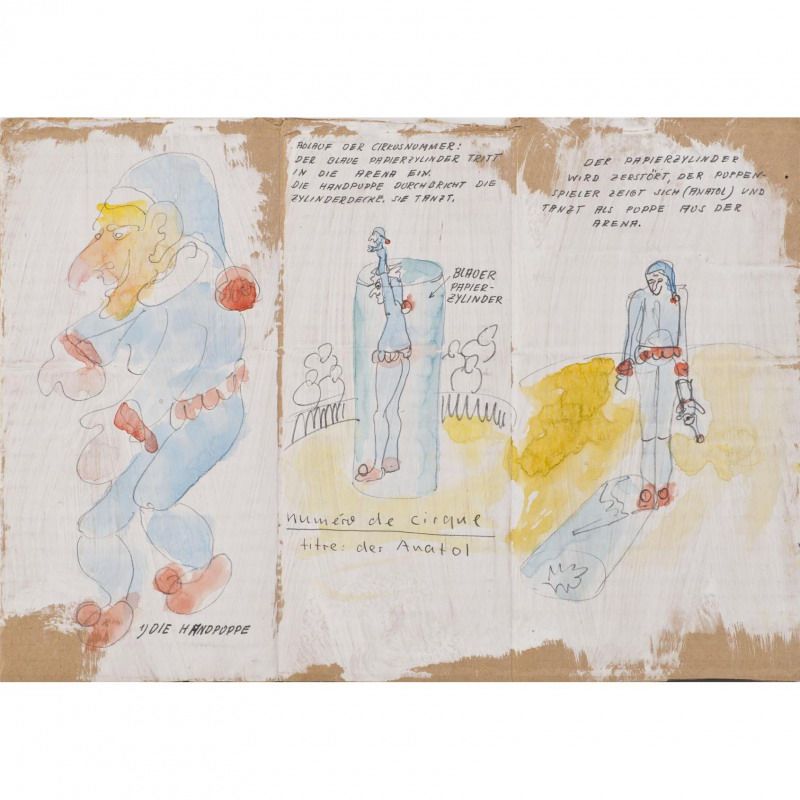 ABLAUF DER CIRKUSNUMMER:
DER BLAUE PAPIERZYLINDER TRITT
IN DIE ARENA EIN.
DIE HANDPUPPE DURCHBRICHT DIE
ZYLINDERDECKE. SIE TANZT.
DER PAPIERZYLINDER
WIRD ZERSTÖRT, DER PUPPEN-
SPIELER ZEIGT SICH (ANATOL) UND
TANZT ALS PUPPE AUS DER
ARENA.
BLAUER
PAPIER-
ZYLINDER
numéro de cirque
titre: der Anatol
1) DIE HANDPUPPE